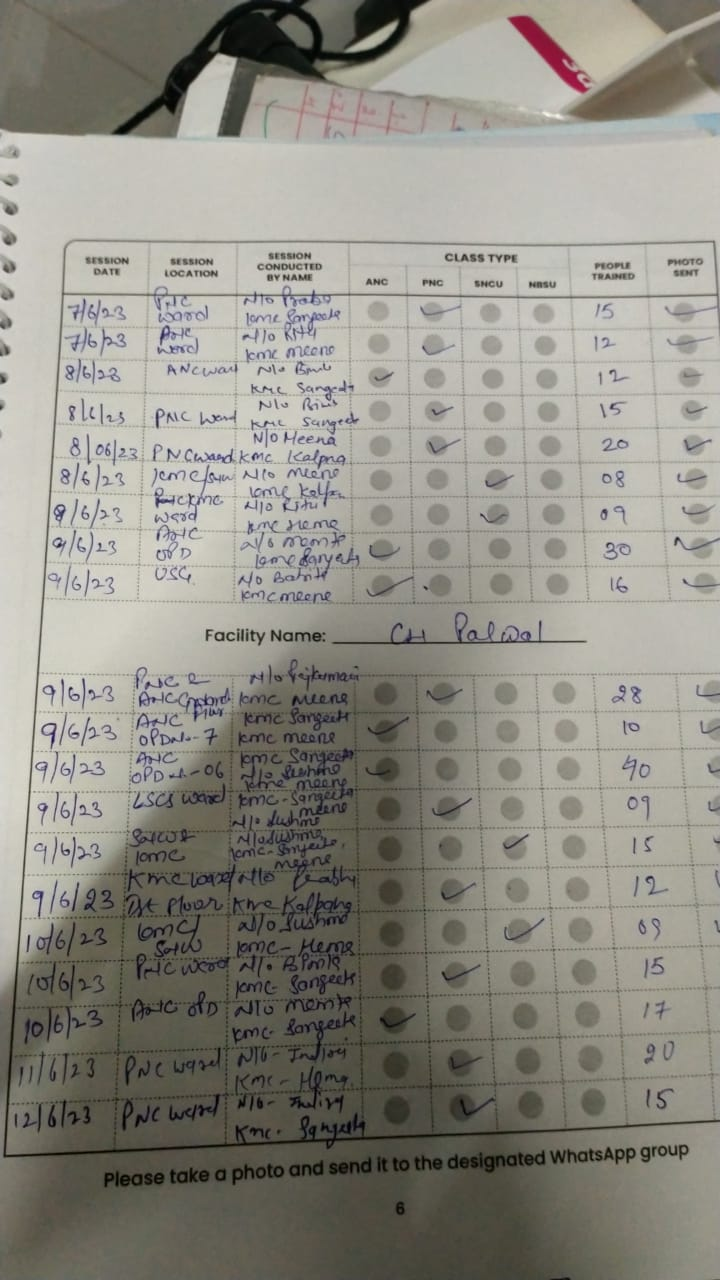 SESSION DATE SESSION LOCATION SESSION CONDUCTED BY NAME CLASS TYPE PEOPLE TRAINED PHOTO SENT
ANC PNC SNCU NBSU
7/6/23 PNC ward N/o Kmc Sangeeta 15
7/6/23 ward N/o Ritu Kmc meene 12
8/6/23 ANC ward N/o Kmc Sangeeta 12
8/6/23 PNC Ward N/o Kmc Sangeeta 15
8/06/23 PNC ward N/o Meena Kmc Kalpna 20
8/6/23 N/o Meene Kmc 08
8/6/23 Kmc ward N/o Ritu Kmc Hema 09
9/6/23 ANC OPD N/o Kmc Sangeeta 30
9/6/23 USG N/o Kmc meene 16
Facility Name: CH Palwal
9/6/23 PNC & N/o Rajkumari Kmc meene 28
9/6/23 ANC OPD No-7 Kmc Sangeeta Kmc meene 10
9/6/23 ANC OPD No-06 Kmc Sangeeta N/o Sushma Kmc meene 40
9/6/23 LSCS ward Kmc-Sangeeta meene N/o Sushma 09
9/6/23 Kmc N/o Sushma Kmc-Sangeeta, meene 15
9/6/23 Kmc ward N/o Kmc Kalpana 12
10/6/23 Kmc/ N/o Sushma Kmc-Hema 09
10/6/23 PNC ward N/o Kmc-Sangeeta 15
10/6/23 ANC OPD N/o Kmc-Sangeeta 17
11/6/23 PNC ward N/o- Kmc-Hema 20
12/6/23 PNC ward N/o- Kmc- Sangeeta 15
Please take a photo and send it to the designated WhatsApp group
6